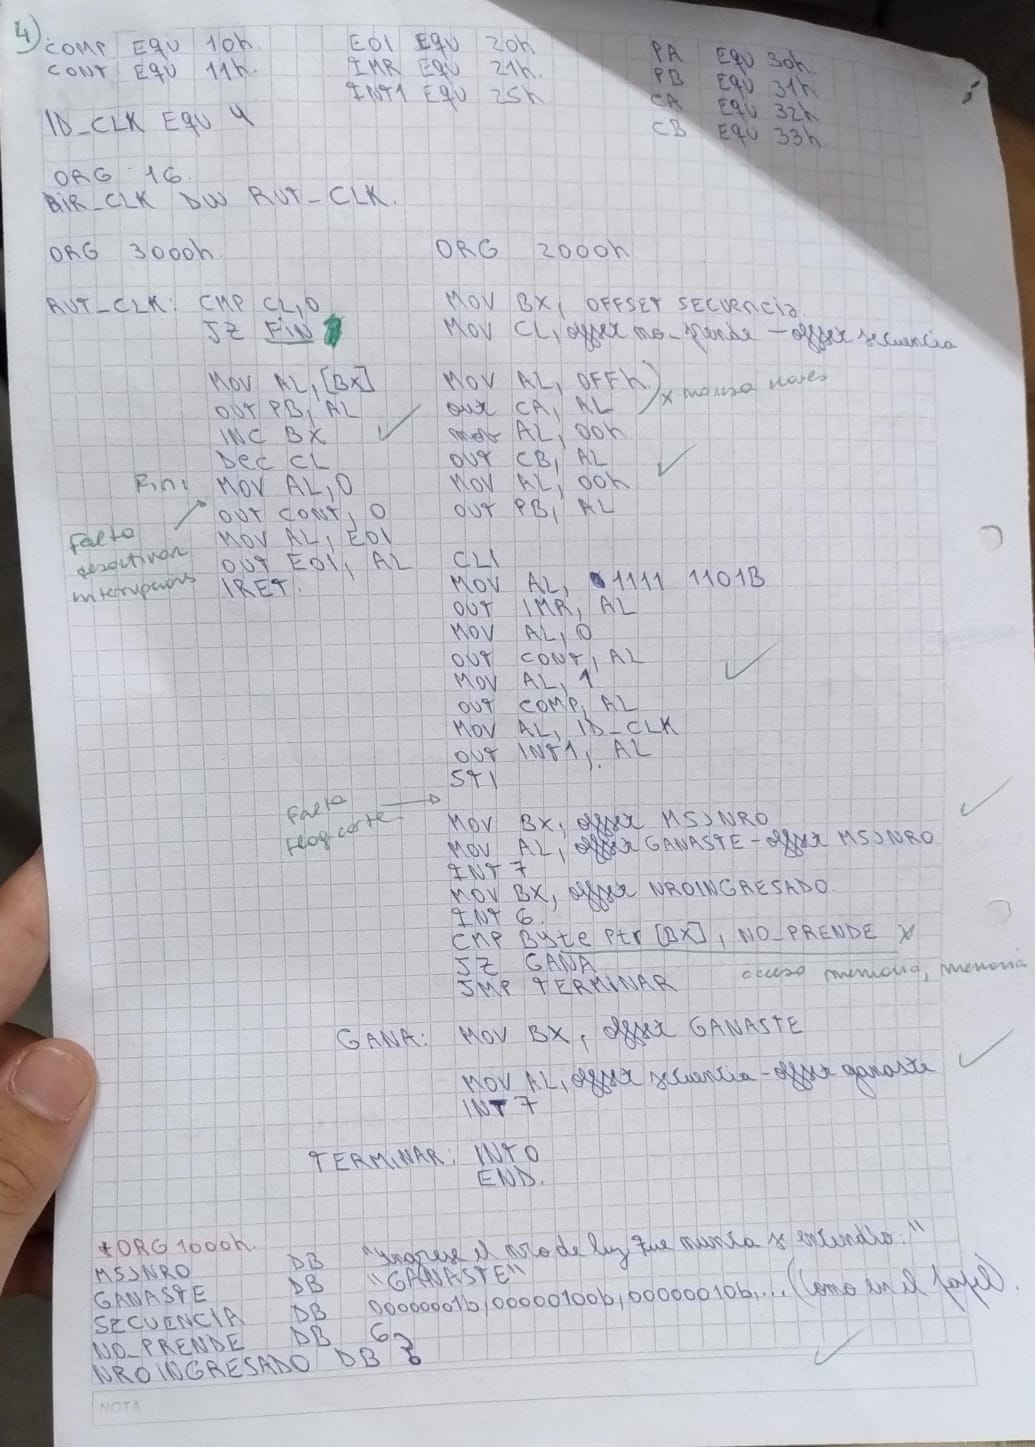 4)
COMP EQU 10h.
CONT EQU 11h.
ID_CLK EQU 4
EOI EQU 20h
IMR EQU 21h.
INT1 EQU 25h
PA EQU 30h.
PB EQU 31h
CA EQU 32h
CB EQU 33h.
ORG 16.
DIR_CLK DW RUT_CLK.
ORG 3000h.
RUT_CLK: CMP CL,0
JZ FIN
MOV AL,[BX]
OUT PB, AL
INC BX
DEC CL
Fin: MOV AL,0
OUT CONT, 0
MOV AL, EOI
OUT EOI, AL
IRET.
Falta
desactivar
interrupciones
ORG 2000h
MOV BX, OFFSET SECUENCIA
MOV CL, offset no_prende - offset secuencia
MOV AL, OFFh
OUT CA, AL
x no usa llaves
MOV AL, 00h
OUT CB, AL
MOV AL, 00h
OUT PB, AL
CLI
MOV AL, 1111 1101B
OUT IMR, AL
MOV AL, 0
OUT CONT, AL
MOV AL, 1
OUT COMP, AL
MOV AL, ID_CLK
OUT INT1, AL
STI
Falta
Flag corte
MOV BX, offset MSJNRO
MOV AL, offset GANASTE - offset MSJNRO
INT 7
MOV BX, offset NROINGRESADO.
INT 6.
CMP Byte Ptr [BX], NO_PRENDE x
JZ GANA
JMP TERMINAR
acceso memoria, memoria
GANA: MOV BX, offset GANASTE
MOV AL, offset secuencia - offset ganaste
INT 7
TERMINAR: INT 0
END.
*ORG 1000h.
MSJNRO DB "Ingrese el nro de luz que nunca se encendio:"
GANASTE DB "GANASTE"
SECUENCIA DB 00000001b, 00000100b, 00000010b,... (Como en el papel.
NO_PRENDE DB 6
NROINGRESADO DB ?
NOTA